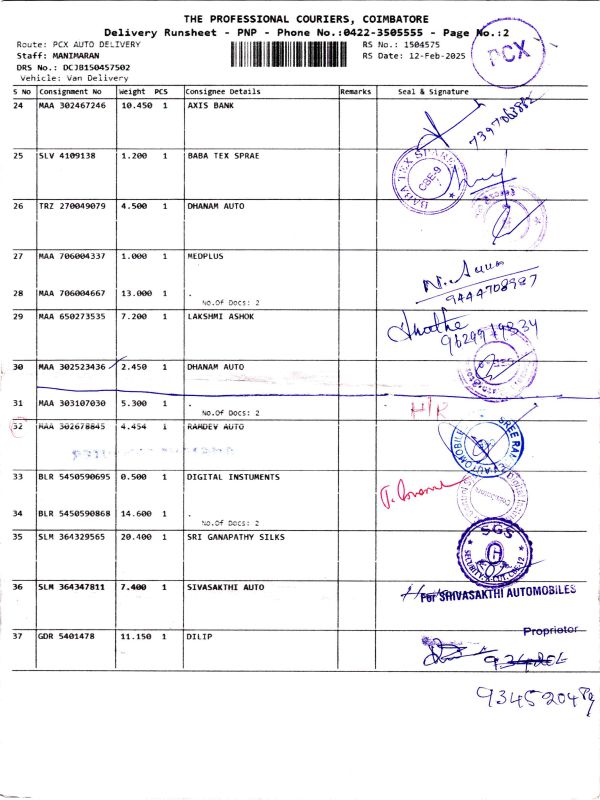 THE PROFESSIONAL COURIERS, COIMBATORE
Delivery Runsheet - PNP - Phone No.:0422-3505555 - Page No.:2
Route: PCX AUTO DELIVERY RS No.: 1504575
Staff: MANIMARAN RS Date: 12-Feb-2025
DRS No.: DCJB150457502
Vehicle: Van Delivery
PCX
S No Consignment No Weight PCS Consignee Details Remarks Seal & Signature
24 MAA 302467246 10.450 1 AXIS BANK
7397063882
25 SLV 4109138 1.200 1 BABA TEX SPRAE
BABA TEX SPARE CBE-9
26 TRZ 270049079 4.500 1 DHANAM AUTO
27 MAA 706004337 1.000 1 MEDPLUS
9444708987
28 MAA 706004667 13.000 1 .
No.Of Docs: 2
29 MAA 650273535 7.200 1 LAKSHMI ASHOK
9629919834
30 MAA 302523436 2.450 1 DHANAM AUTO
31 MAA 303107030 5.300 1 .
No.Of Docs: 2
H/R
32 MAA 302678845 4.454 1 RAMDEV AUTO
33 BLR 5450590695 0.500 1 DIGITAL INSTUMENTS
34 BLR 5450590868 14.600 1 .
No.Of Docs: 2
35 SLM 364329565 20.400 1 SRI GANAPATHY SILKS
SGS
36 SLM 364347811 7.400 1 SIVASAKTHI AUTO
For SHRIVASAKTHI AUTOMOBILES
Proprietor
37 GDR 5401478 11.150 1 DILIP
934520489